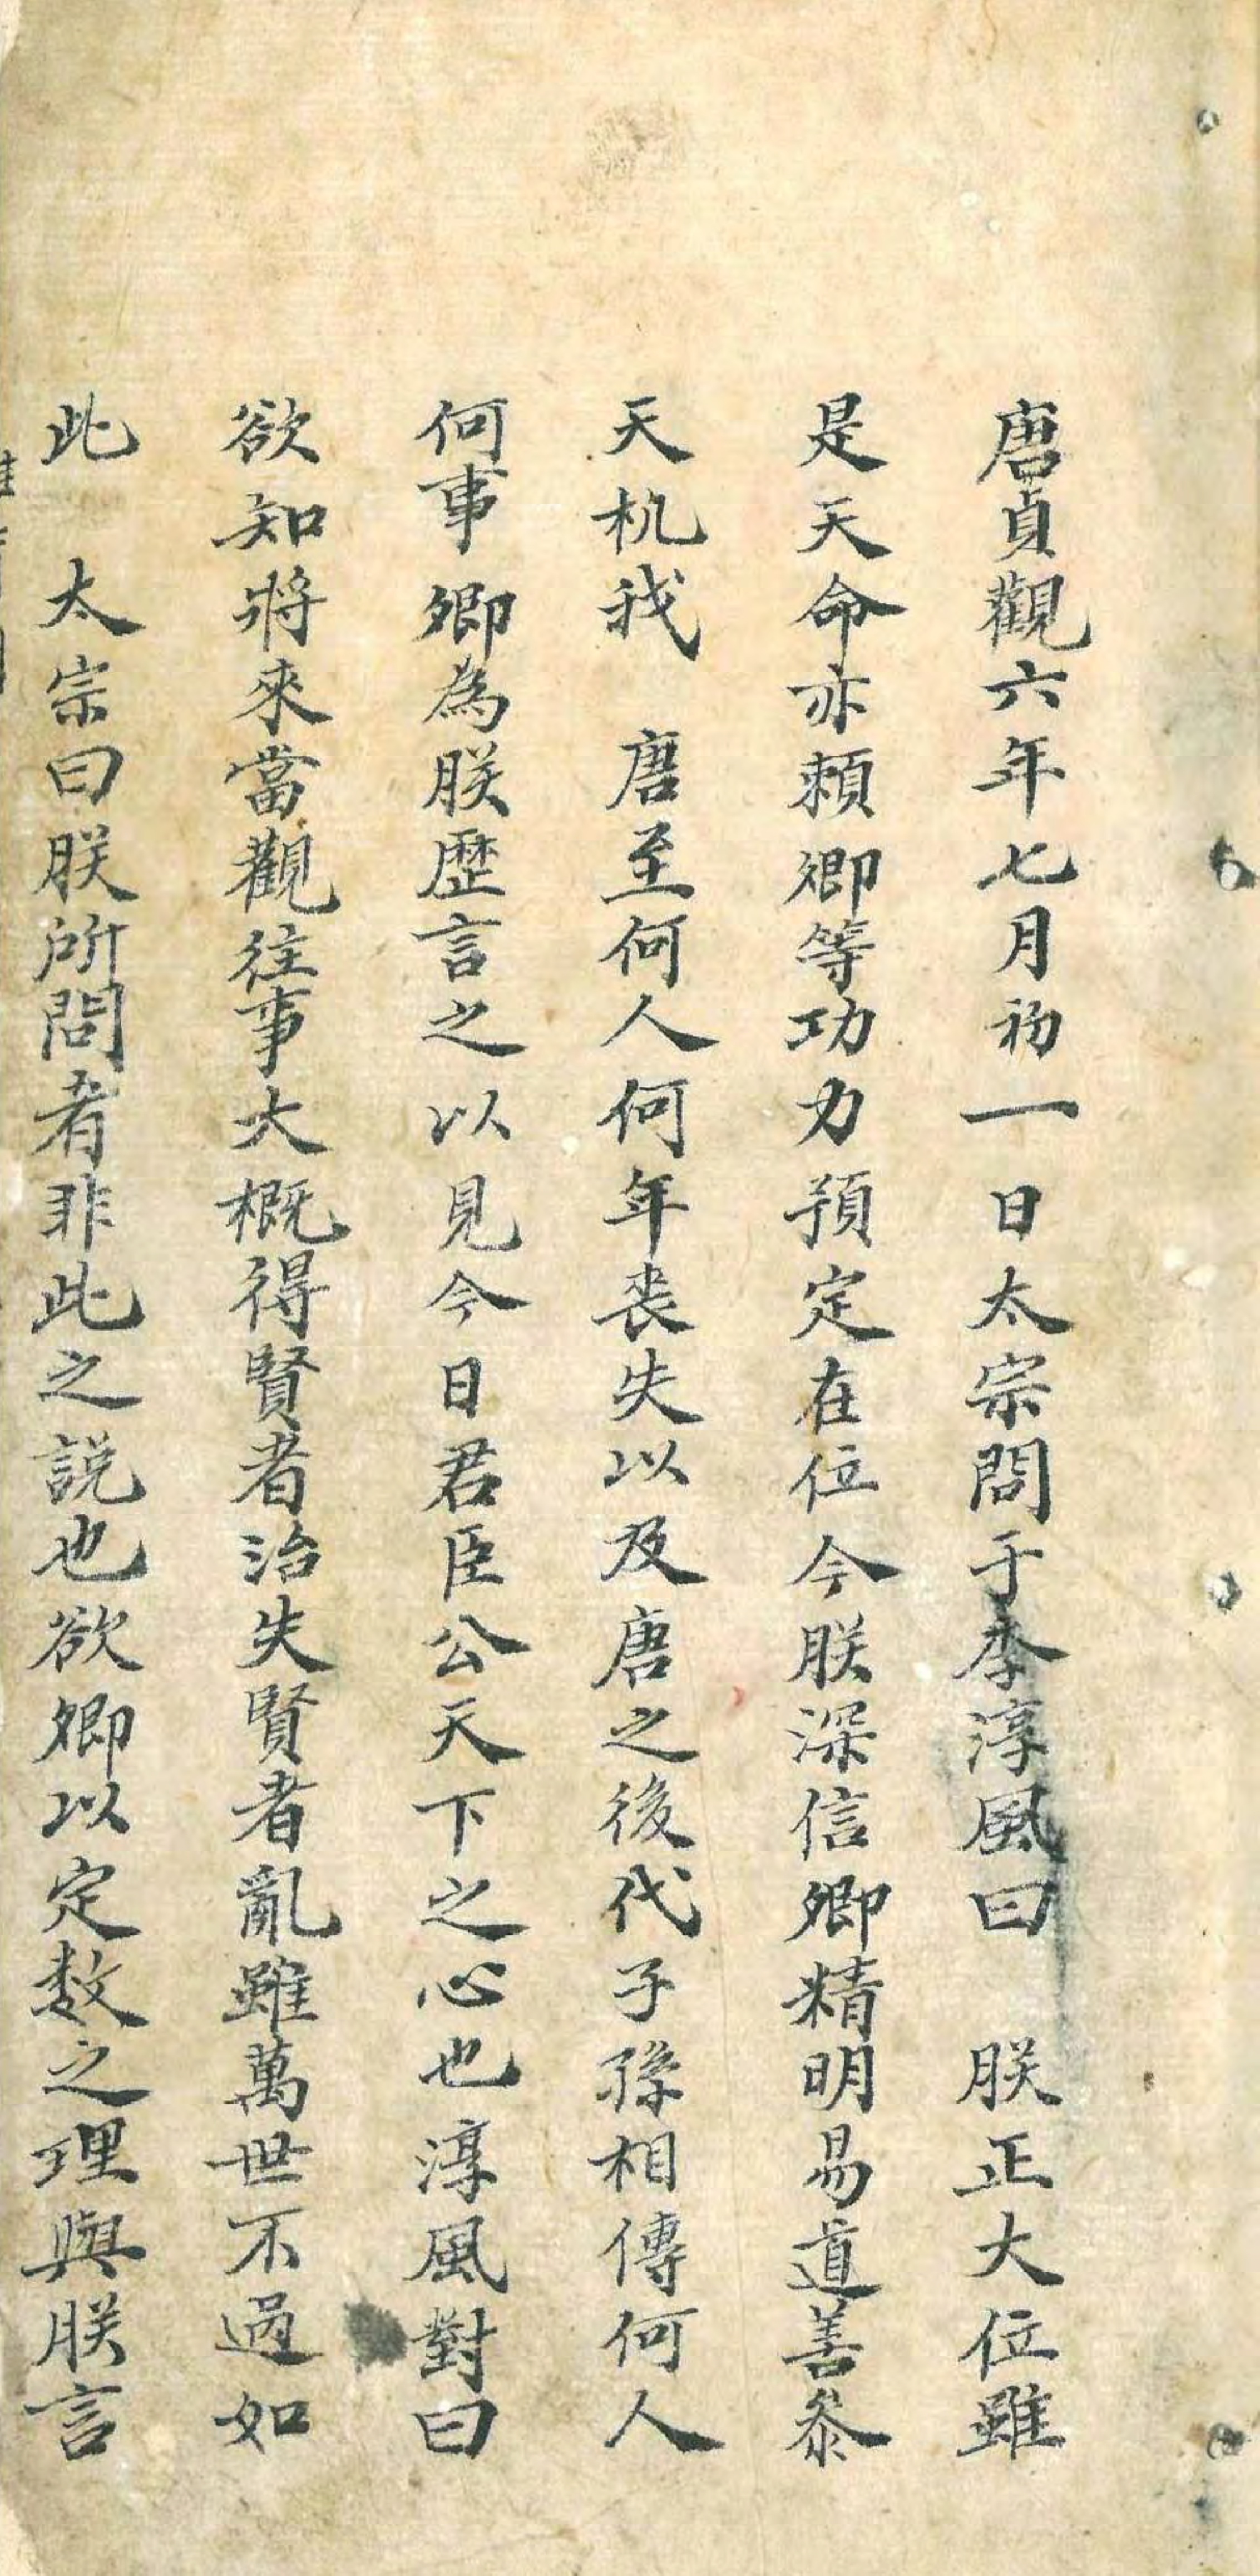 唐貞觀六年七月初一日太宗問于李淳風曰　朕正大位雖
是天命亦頼卿等功力預定在位今朕深信卿精明易道善叅
天机我　唐至何人何年丧失以及唐之後代子孫相傳何人
何事卿為朕歷言之以見今日君臣公天下之心也淳風對曰
欲知將來當觀往事大概得賢者治失賢者亂雖萬世不過如
此　太宗曰朕所問者非此之説也欲卿以定数之理與朕言